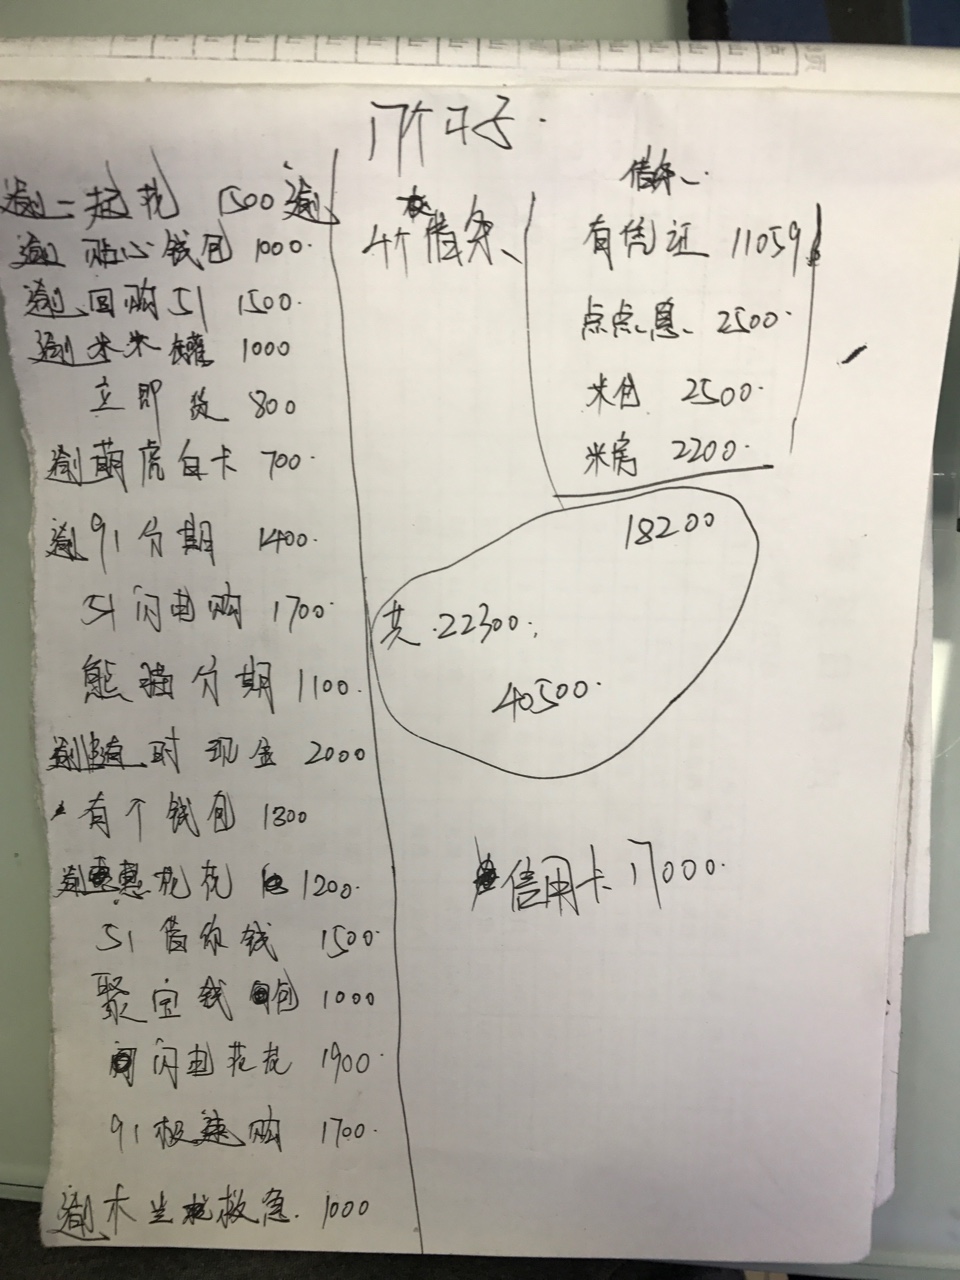 17个口子.
逾一起花 1500 逾
逾 贴心钱包 1000.
逾 回购51 1500.
逾 米米罐 1000
立即贷 800
逾 萌虎白卡 700.
逾 91分期 1400.
51闪电购 1700.
熊猫分期 1100.
逾随时现金 2000
有个钱包 1300
逾 惠花花 1200.
51借你钱 1500.
聚宝钱包 1000
闪电花花 1900.
91极速购 1700.
逾 救急. 1000
4个借条、
借条、
有凭证 11059
点点息、2500.
米包 2500.
米房 2200.
18200
共.22300.
40500.
信用卡 17000.